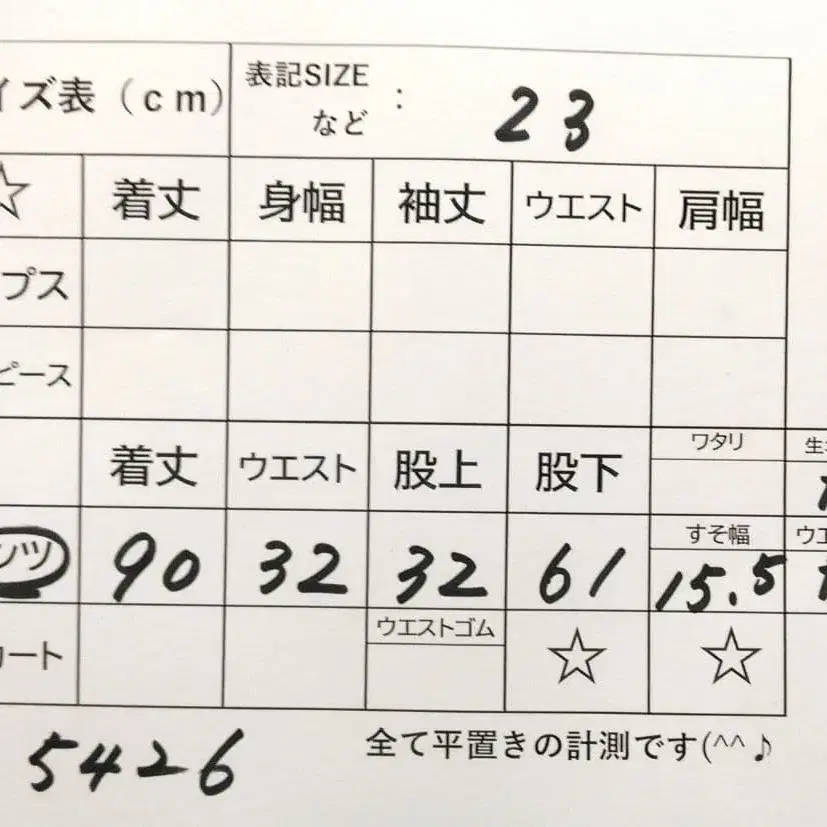 イズ表（cm） 表記SIZE など : 23
☆ 着丈 身幅 袖丈 ウエスト 肩幅
プス
ピース
着丈 ウエスト 股上 股下 ワタリ 生
ンツ 90 32 32 61 すそ幅 15.5 ウエ
カート ウエストゴム ☆ ☆
5426 全て平置きの計測です(^^♪